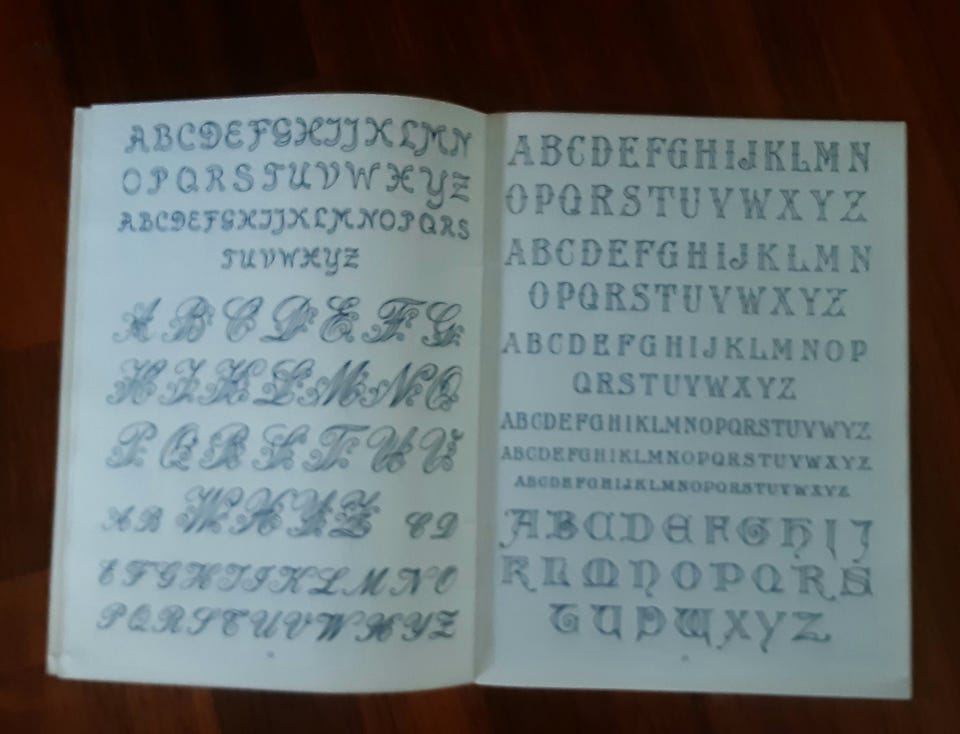 ABCDEFGHIJKLMN
OPQRSTUVWXYZ
ABCDEFGHIJKLMNOPQRS
TUVWXYZ
A B C D E F G
H I K L M N O
P Q R S T U V
A B W X Y Z C D
E F G H I J K L M N O
P Q R S T U V W X Y Z
ABCDEFGHIJKLMN
OPQRSTUVWXYZ
ABCDEFGHIJKLMN
OPQRSTUVWXYZ
ABCDEFGHIJKLMNOP
QRSTUVWXYZ
ABCDEFGHIKLMNOPQRSTUVWYZ
ABCDEFGHIKLMNOPQRSTUVWXYZ
ABCDEFGHIJKLMNOPQRSTUVWXYZ
ABCDEFGHIJ
KLMNOPQRS
TUVWXYZ